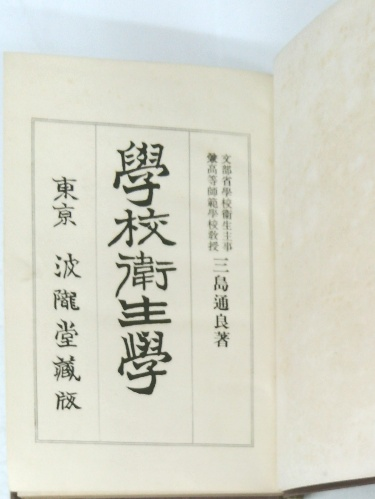 文部省學校衛生主事
兼高等師範學校敎授
三島通良著
學校衛生學
東京 波隴堂藏版